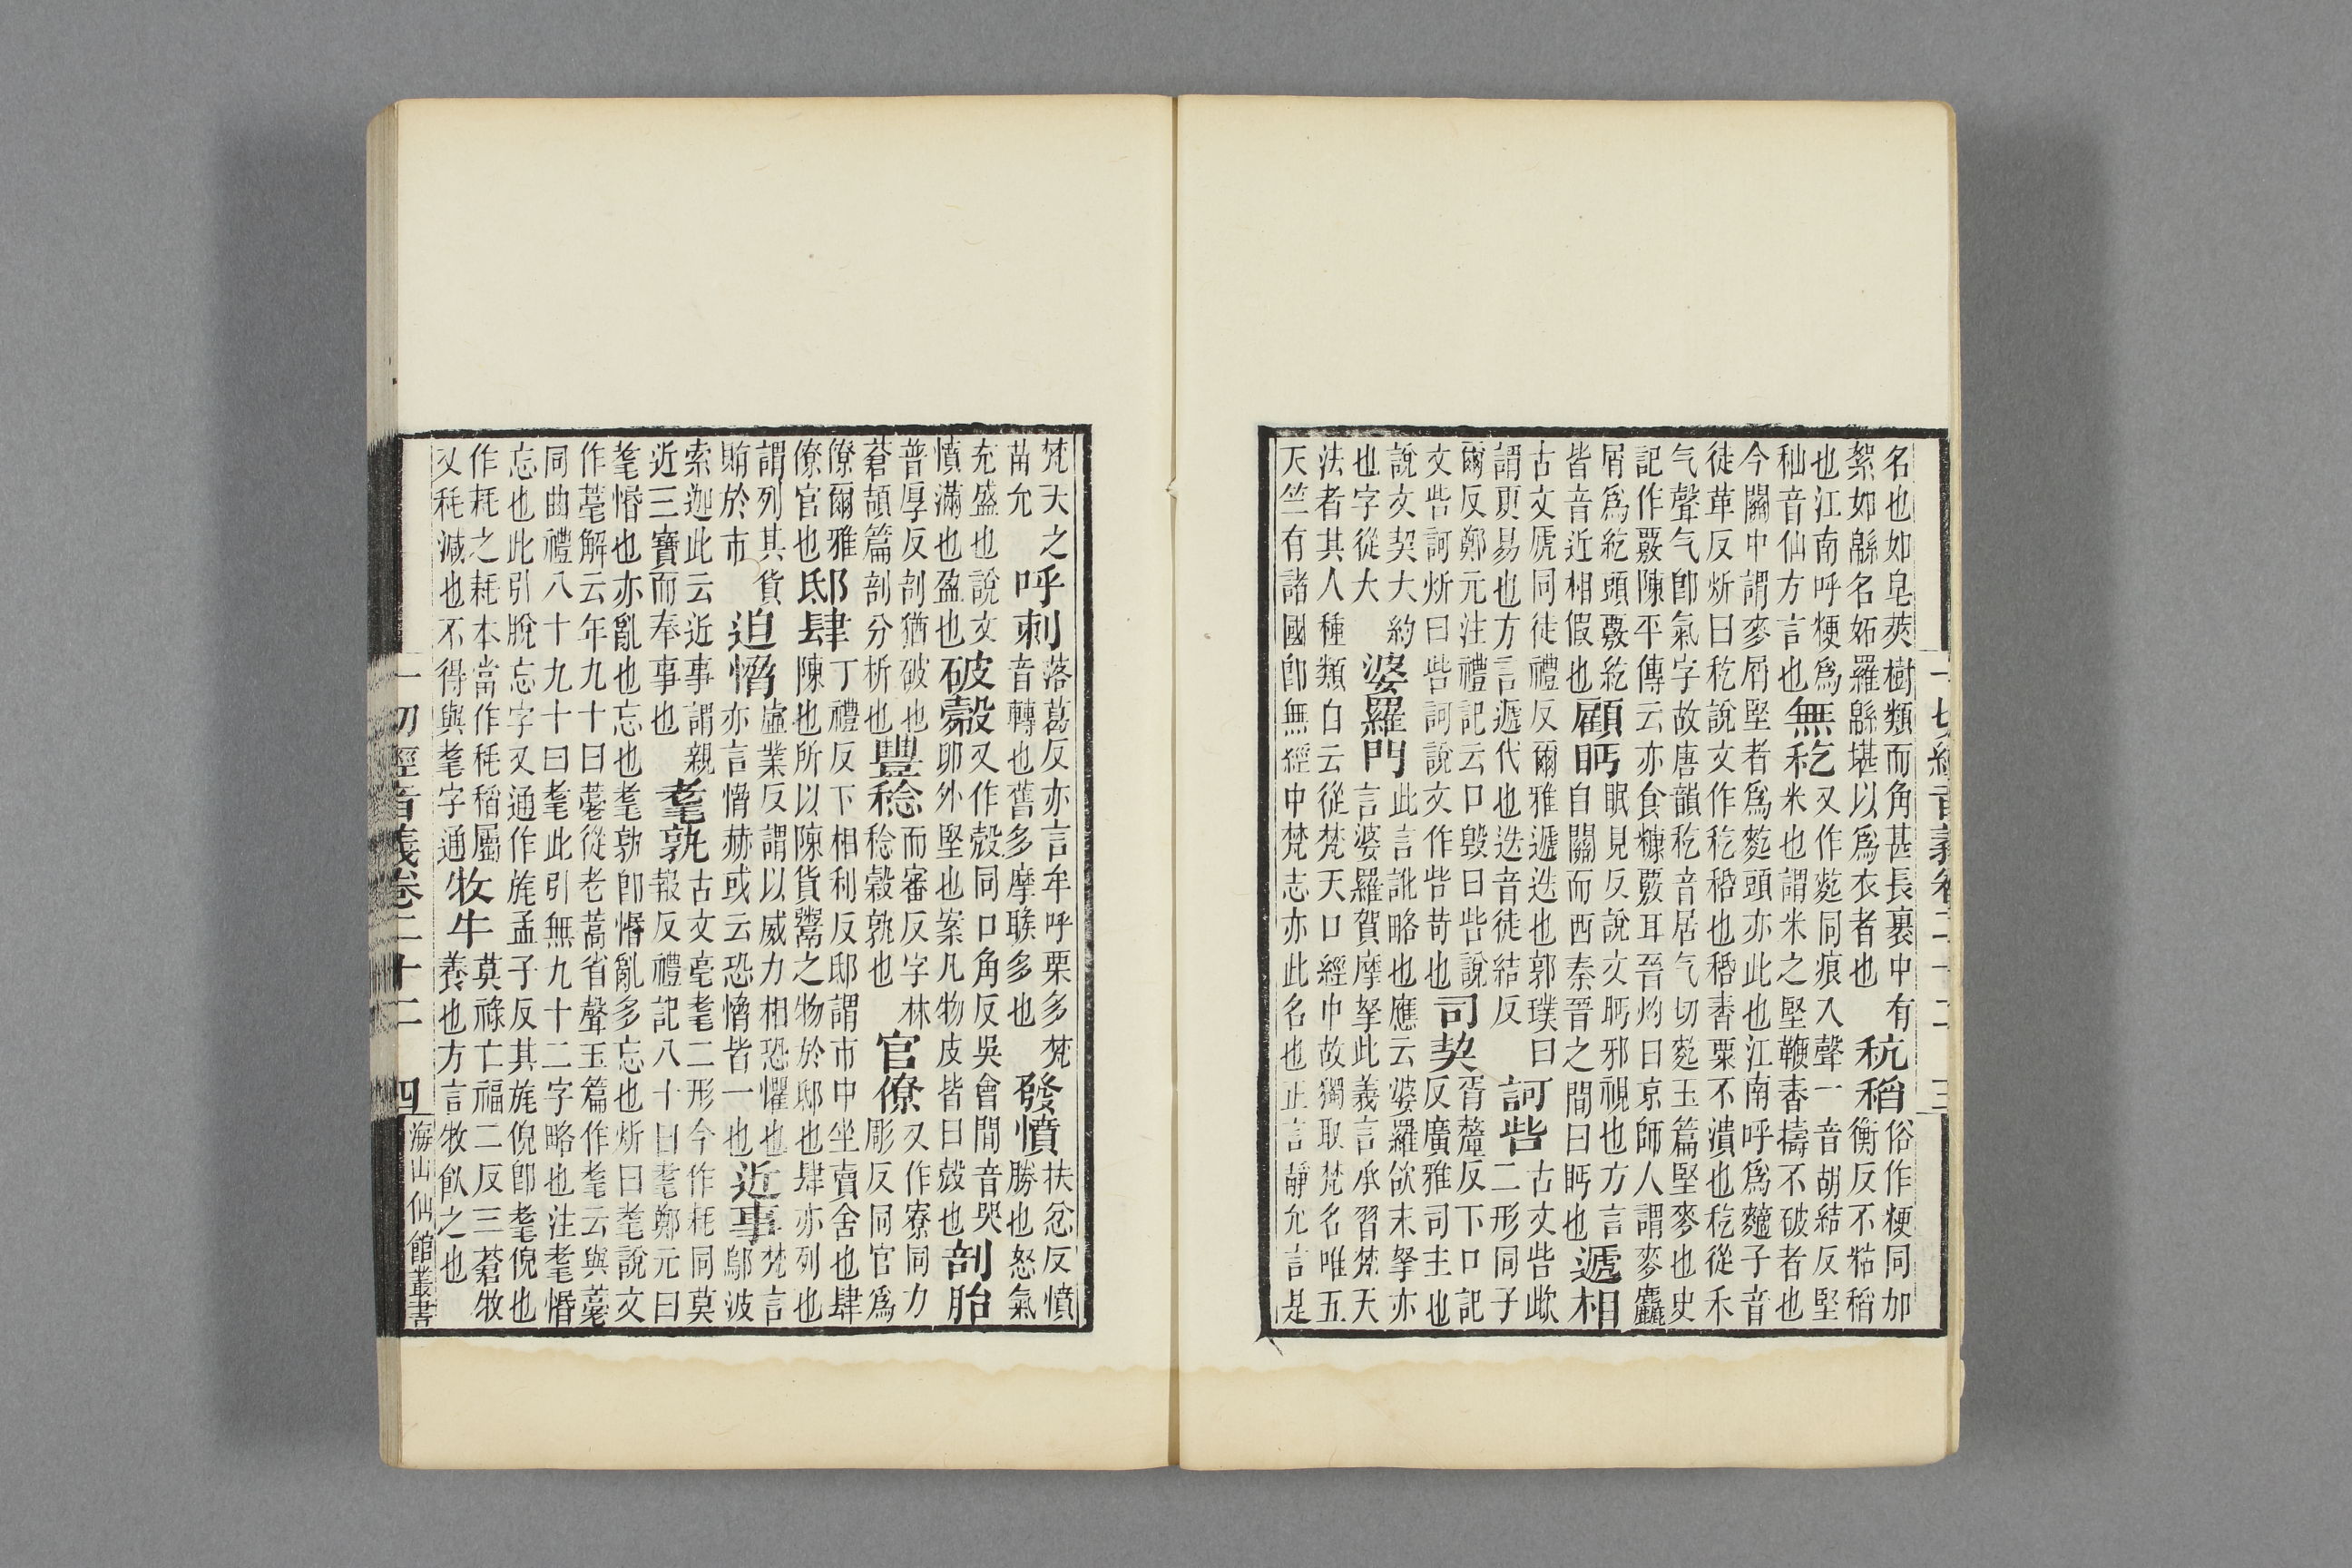 一切經音義卷二十二 三
名也如皂莢樹類而角甚長裏中有
絮如緜名妬羅緜堪以爲衣者也
秔稻
俗作粳同加
衡反不粘稻
也江南呼粳爲
秈音仙方言也
無
又作麧同痕入聲一音胡結反堅
米也謂米之堅鞕舂擣不破者也
今關中謂麥屑堅者爲麧頭亦此也江南呼爲䴰子音
徒革反炘曰說文作䅥也䅥舂粟不潰也從禾
气聲气卽氣字故唐韻音居气切麧玉篇堅麥也史
記作覈陳平傳云亦食糠覈耳晉灼曰京師人謂麥麤
屑爲紇頭覈紇
皆音近相假也
顧眄
眠見反說文眄邪視也方言
自關而西秦晉之間曰眄也
遞相
古文虒同徒禮反爾雅遞迭也郭璞曰
謂更易也方言遞代也迭音徒結反
訶呰
古文呰欪
二形同子
爾反鄭元注禮記云口毀曰呰說
文呰訶炘曰呰訶說文作呰苛也
司契
胥釐反下口記
反廣雅司主也
說文契大約
也字從大
婆羅門
此言訛略也應云婆羅欱末拏亦
言婆羅賀摩拏此義言承習梵天
法者其人種類自云從梵天口經中故獨取梵名唯五
天竺有諸國卽無經中梵志亦此名也正言靜允言是
梵天之
允
呼剌
落葛反亦言牟呼栗多梵
音轉也舊多摩睺多也
發憤
扶忿反憤
勝也怒氣
充盛也說文
憤滿也盈也
破㲉
又作㱿同口角反吳會間音哭
卵外堅也案凡物皮皆曰㲉也
剖胎
普厚反剖猶破也
蒼頡篇剖分析也
豐稔
而審反字林
稔穀孰也
官僚
又作寮同力
彫反同官爲
僚爾雅
僚官也
邸肆
丁禮反下相利反邸謂市中坐賣舍也肆
陳也所以陳貨鬻之物於邸也肆亦列也
謂列其貨
賄於市
迫愶
虛業反謂以威力相恐懼也
亦言愶赫或云恐愶皆一也
近事
梵言
鄔波
索迦此云近事謂親
近三寶而奉事也
耄孰
古文耄二形今作耗同莫
報反禮記八十曰耄鄭元曰
耄惛也亦亂也忘也耄孰卽惛亂多忘也炘曰耄說文
作薹解云年九十曰薹從老蒿省聲玉篇作耄云與薹
同曲禮八十九十曰耄此引無九十二字略也注耄惛
忘也此引脫忘字又通作旄孟子反其旄倪卽耄倪也
作耗之耗本當作秏稻屬
又秏減也不得與耄字通
牧牛
莫祿亡福二反三蒼牧
養也方言牧飤之也
一切經音義卷二十二 四 海山仙館叢書